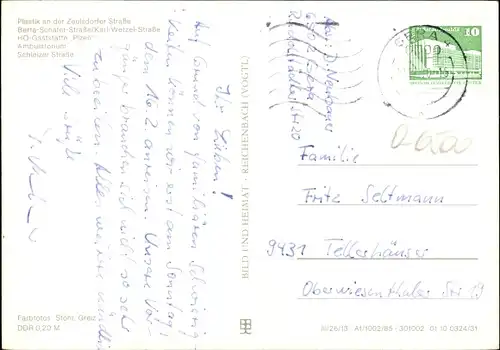 Plastik an der Zeulsdorfer Straße
Berta-Schäfer-Straße/Karl-Wetzel-Straße
HO-Gaststätte „Ploen“
Ambulatorium
Schleizer Straße
Ihr Lieben!
Auf Grund von familiären Schwierig-
keiten können wir erst am Sonntag,
dem 16.2. anreisen. Unsere Vor-
gänger brauchen sich nicht so sehr
zu beeilen. Alles weitere mündlich
Viele Grüße
BILD UND HEIMAT · REICHENBACH (VOGTL)
Abs.: D. Neubauer
6500 Gera
Rudolstädter Str 20
GERA
10
Familie
Fritz Seltmann
9431 Tellerhäuser
Oberwiesenthaler Str 19
Farbfotos: Stöhr, Greiz
DDR 0,20 M
III/26/13 A1/1002/85 - 301002 01 10 0324/31